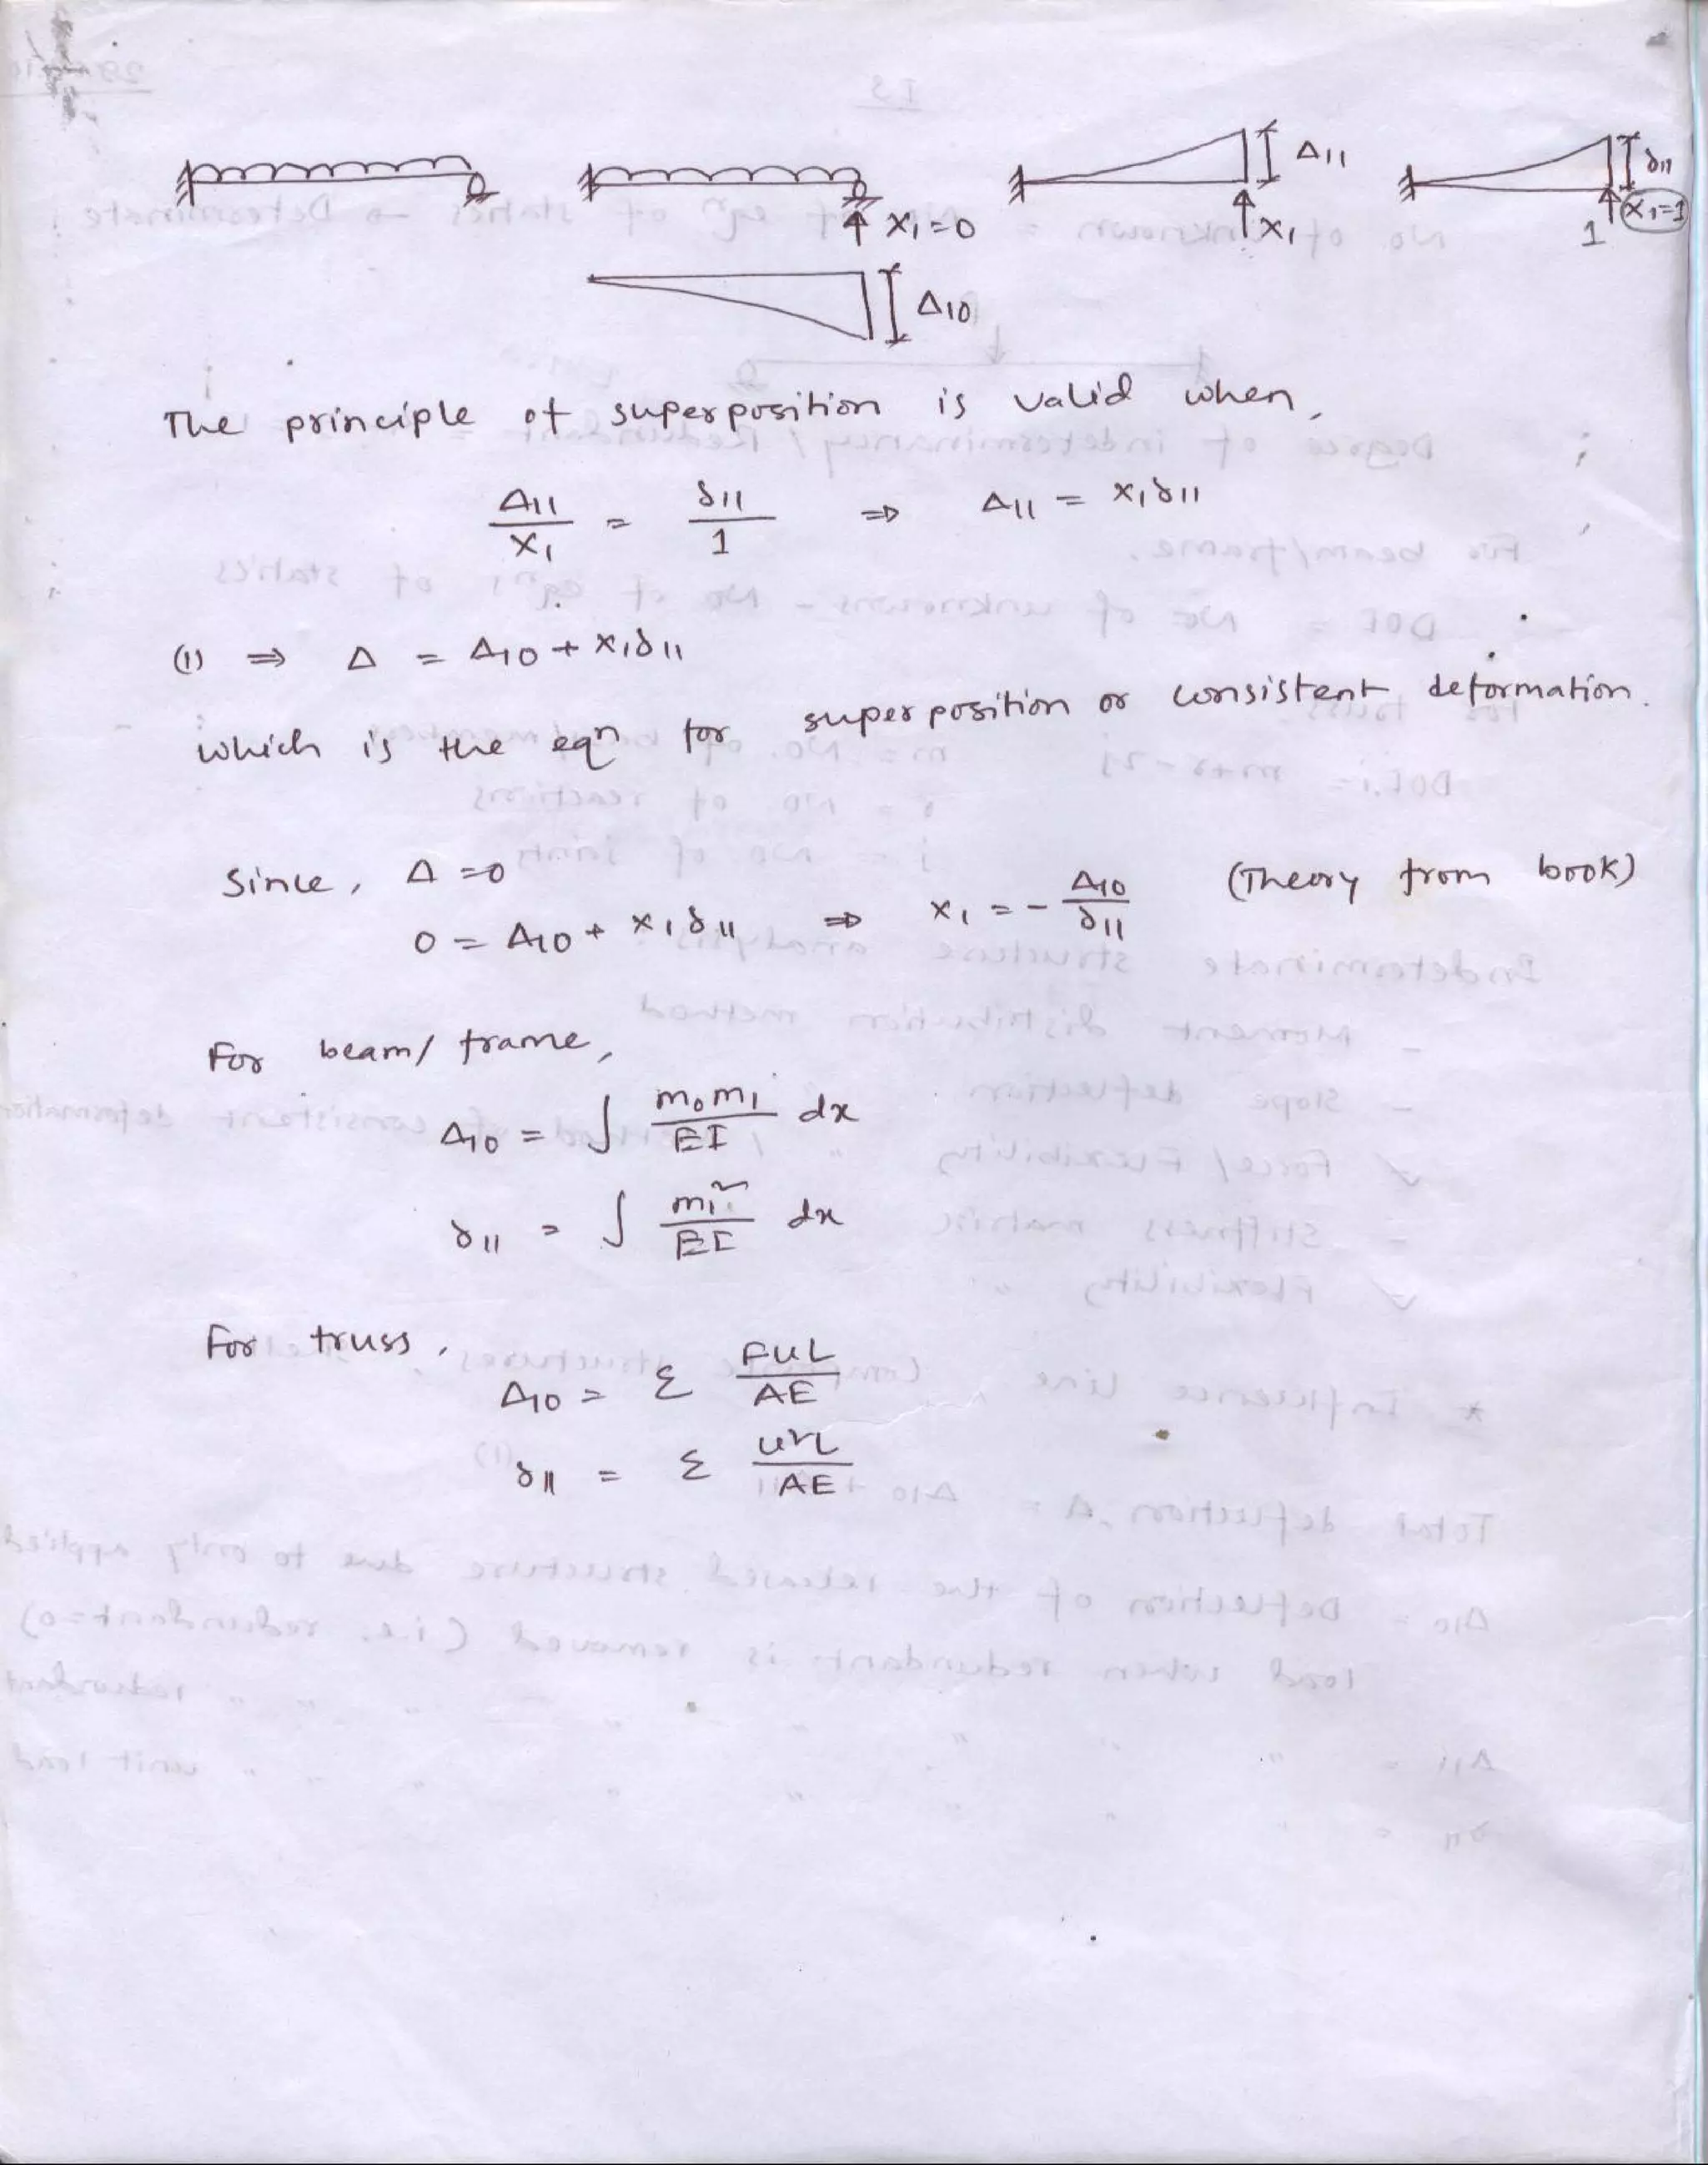 Δ11
δ11
X1=0
X1
1 X1=1
Δ10
The principle of superposition is valid when,
Δ11/X1 = δ11/1 ⇒ Δ11 = X1δ11
(1) ⇒ Δ = Δ10 + X1δ11
which is the eqn for superposition or consistent deformation.
Since, Δ=0
0 = Δ10 + X1δ11 ⇒ X1 = - Δ10/δ11 (Theory from book)
For beam/frame,
Δ10 = ∫ m0m1/EI dx
δ11 = ∫ m1²/EI dx
For truss,
Δ10 = Σ FUL/AE
δ11 = Σ U²L/AE